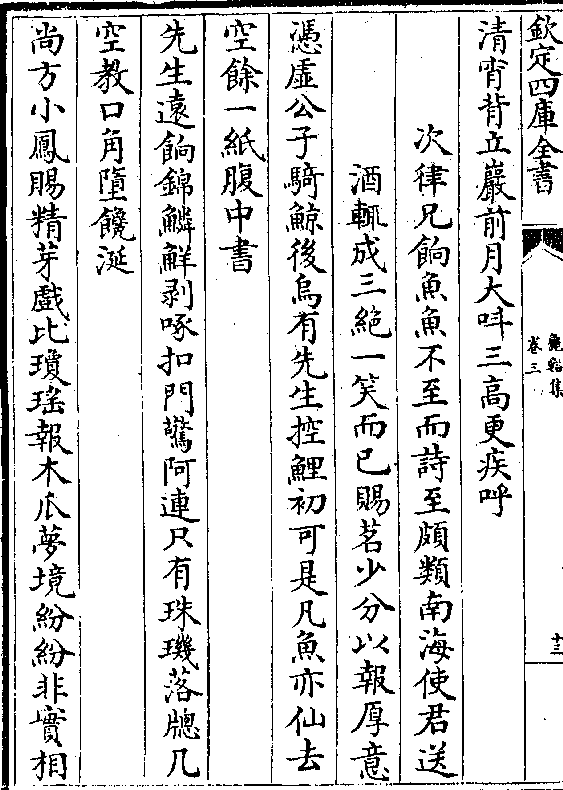 欽定四庫全書
龜谿集
卷三
十三
清宵背立巖前月大呌三高更疾呼
次律兄餉魚魚不至而詩至頗類南海使君送
酒輒成三絶一笑而已賜茗少分以報厚意
憑虛公子騎鯨後烏有先生控鯉初可是凡魚亦仙去
空餘一紙腹中書
先生逺餉錦鱗鮮剥啄扣門驚阿連只有珠璣落牕几
空教口角墮饞涎
尚方小鳳賜精芽戲比瓊瑤報木瓜夢境紛紛非實相